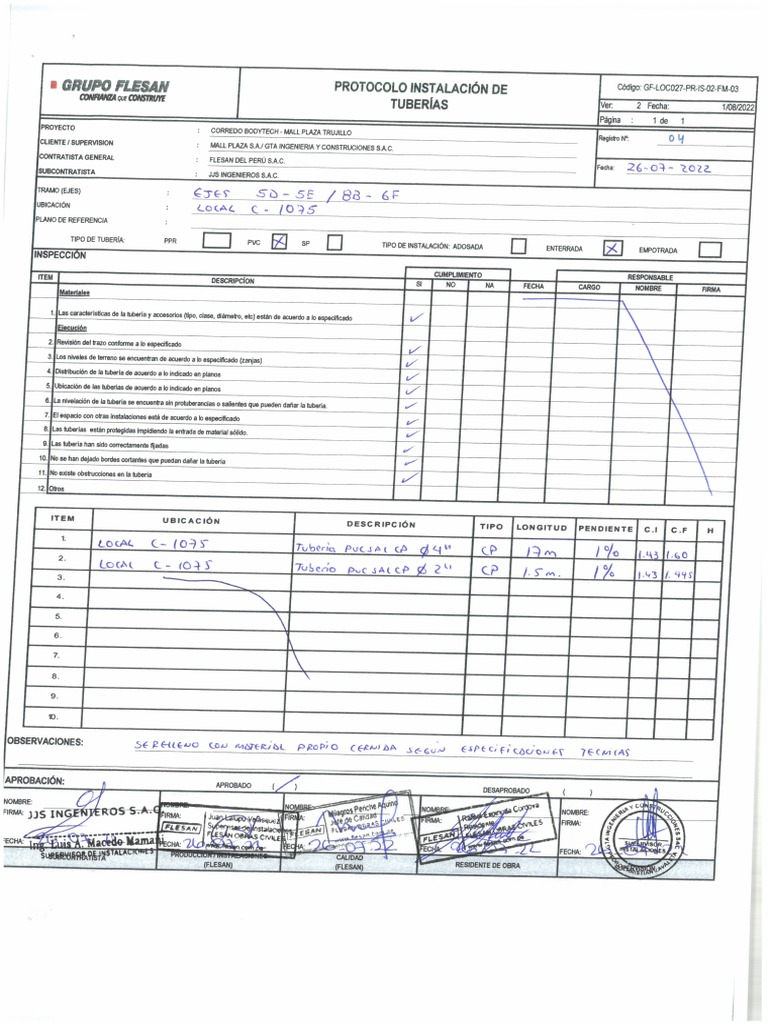 GRUPO FLESAN
CONFIANZA QUE CONSTRUYE
PROTOCOLO INSTALACIÓN DE
TUBERÍAS
Código: GF-LOC027-PR-IS-02-FM-03
Ver: 2 Fecha: 1/08/2022
Página : 1 de 1
PROYECTO : CORREDO BODYTECH - MALL PLAZA TRUJILLO
Registro Nº: 04
CLIENTE / SUPERVISION : MALL PLAZA S.A./ GTA INGENIERIA Y CONSTRUCIONES S.A.C.
CONTRATISTA GENERAL : FLESAN DEL PERÚ S.A.C.
Fecha: 26-07-2022
SUBCONTRATISTA : JJS INGENIEROS S.A.C.
TRAMO (EJES) : EJES 5D-5E / BB-6F
UBICACIÓN : LOCAL C-1075
PLANO DE REFERENCIA :
TIPO DE TUBERÍA: PPR PVC X SP TIPO DE INSTALACIÓN: ADOSADA ENTERRADA X EMPOTRADA
INSPECCIÓN
ITEM DESCRIPCÍON CUMPLIMIENTO RESPONSABLE
SI NO NA FECHA CARGO NOMBRE FIRMA
Materiales
1. Las caracteristicas de la tuberia y accesorios (tipo, clase, diámetro, etc) están de acuerdo a lo especificado ✓
Ejecución
2. Revisión del trazo conforme a lo especificado ✓
3. Los niveles de terreno se encuentran de acuerdo a lo especificado (zanjas) ✓
4. Distribución de la tubería de acuerdo a lo indicado en planos ✓
5. Ubicación de las tuberias de acuerdo a lo indicado en planos ✓
6. La nivelación de la tubería se encuentra sin protuberancias o salientes que pueden dañar la tuberia. ✓
7. El espacio con otras instalaciones está de acuerdo a lo especificado ✓
8. Las tuberias están protegidas impidiendo la entrada de material sólido. ✓
9. Las tuberia han sido correctamente fijadas ✓
10. No se han dejado bordes cortantes que puedan dañar la tuberia ✓
11. No existe obstrucciones en la tuberia ✓
12. Otros
ITEM UBICACIÓN DESCRIPCIÓN TIPO LONGITUD PENDIENTE C.I C.F H
1. LOCAL C-1075 Tuberia PVC SAL CP Ø 4" CP 17m 1% 1.43 1.60
2. LOCAL C-1075 Tuberio PVC SAL CP Ø 2" CP 1.5 m. 1% 1.43 1.445
3.
4.
5.
6.
7.
8.
9.
10.
OBSERVACIONES: SE RELLENO CON MATERIAL PROPIO CERNIDA SEGÚN ESPECIFICACIONES TECNICAS
APROBACIÓN: APROBADO ( / ) DESAPROBADO ( )
NOMBRE: NOMBRE: NOMBRE: NOMBRE: NOMBRE:
FIRMA: FIRMA: FIRMA: FIRMA: FIRMA:
JJS INGENIEROS S.A.C
Ing. Luis A. Macedo Mamani
SUPERVISOR DE INSTALACIONES
FLESAN
FLESAN OBRAS CIVILES
Milagros Periche Aquino
Jefe de Calidad
FLESAN
FLESAN OBRAS CIVILES
FLESAN
Residente
FLESAN OBRAS CIVILES
GTA INGENIERIA Y CONSTRUCCIONES SAC
SUPERVISOR
INSTALACIONES
FECHA: FECHA: 26-07-22 FECHA: 26-07-22 FECHA: FECHA:
SUBCONTRATISTA PRODUCCION / INSTALACIONES CALIDAD RESIDENTE DE OBRA SUPERVISION
(FLESAN) (FLESAN)